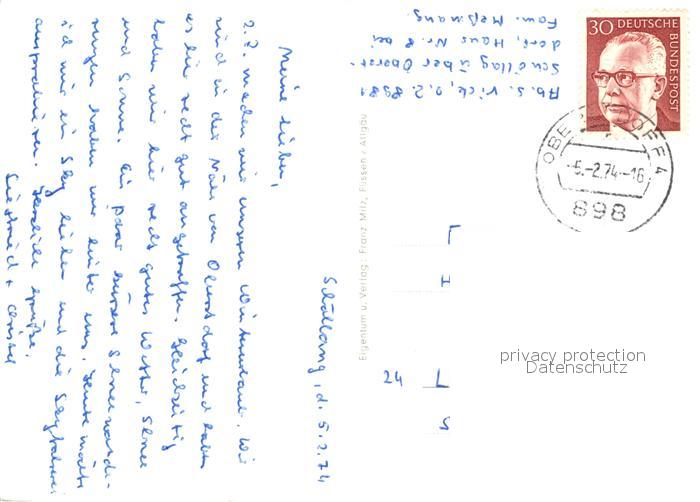 Schöllang, d. 5.2.74
Meine Lieben,
z. Z. machen wir unseren Winterurlaub. Wir
sind in der Nähe von Oberstdorf und haben
es hier recht gut angetroffen. Gleichzeitig
haben wir hier recht gutes Wetter, Schnee
und Sonne. Ein paar kürzere Schneewande-
rungen haben wir hinter uns. Heute möchte
ich mir ein Sky leihen und die Skyfahrerei
ausprobieren. Herzliche Grüße.
Siegfried + Christel
Ab. S. Vick, z. Z. 8981
Schöllag über Oberst-
dorf, Haus Nr. 8 bei
Fam. Meßmang
Eigentum u. Verlag: Franz Milz, Füssen / Allgäu
30 DEUTSCHE
BUNDESPOST
-5.-2.74-16
898
24
privacy protection
Datenschutz